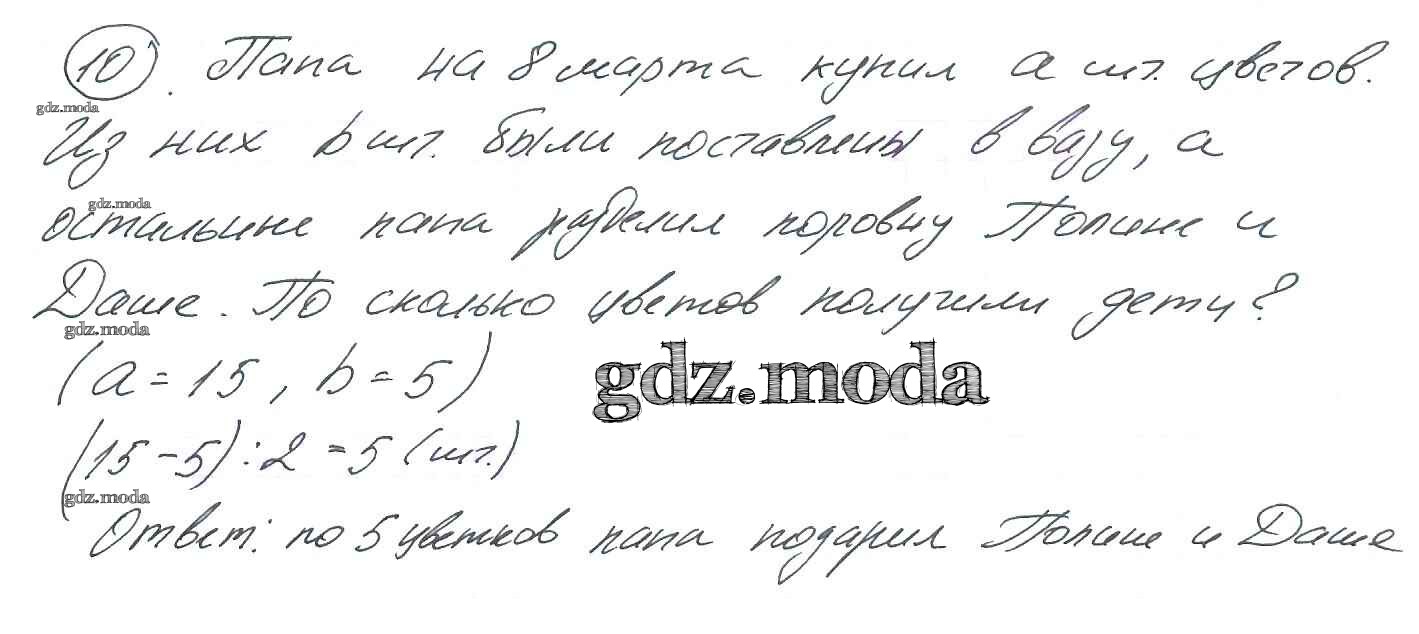 10. Папа на 8 марта купил a шт. цветов.
gdz.moda
Из них b шт. были поставлены в вазу, а
gdz.moda
остальные папа разделил поровну Полине и
Даше. По сколько цветов получили дети?
gdz.moda
(a = 15, b = 5)
gdz.moda
(15 - 5) : 2 = 5 (шт.)
gdz.moda
Ответ: по 5 цветков папа подарил Полине и Даше